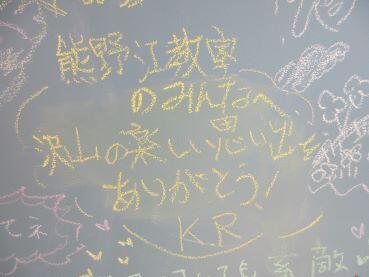 熊野江教室
のみんなへ
沢山の楽しい思い出を
ありがとう!
K.R
素敵